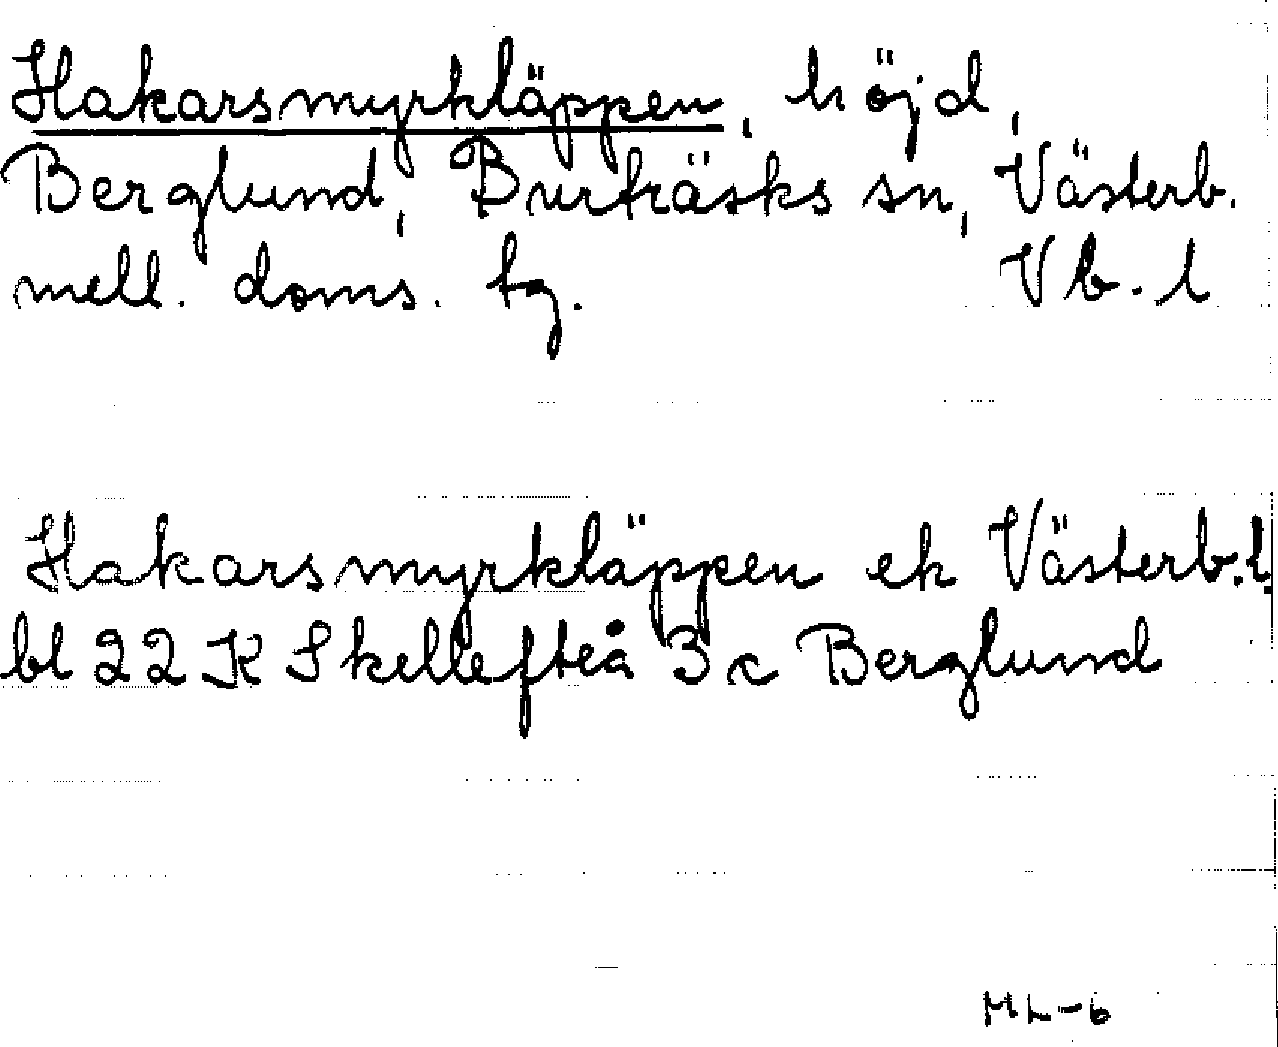 Hakarsmyrkläppen, höjd,
Berglund, Burträsks sn, Västerb.
mell. doms. tg. Vb. l
Hakarsmyrkläppen ek Västerb. l.
bl 22 K Skellefteå 3c Berglund
ML-6